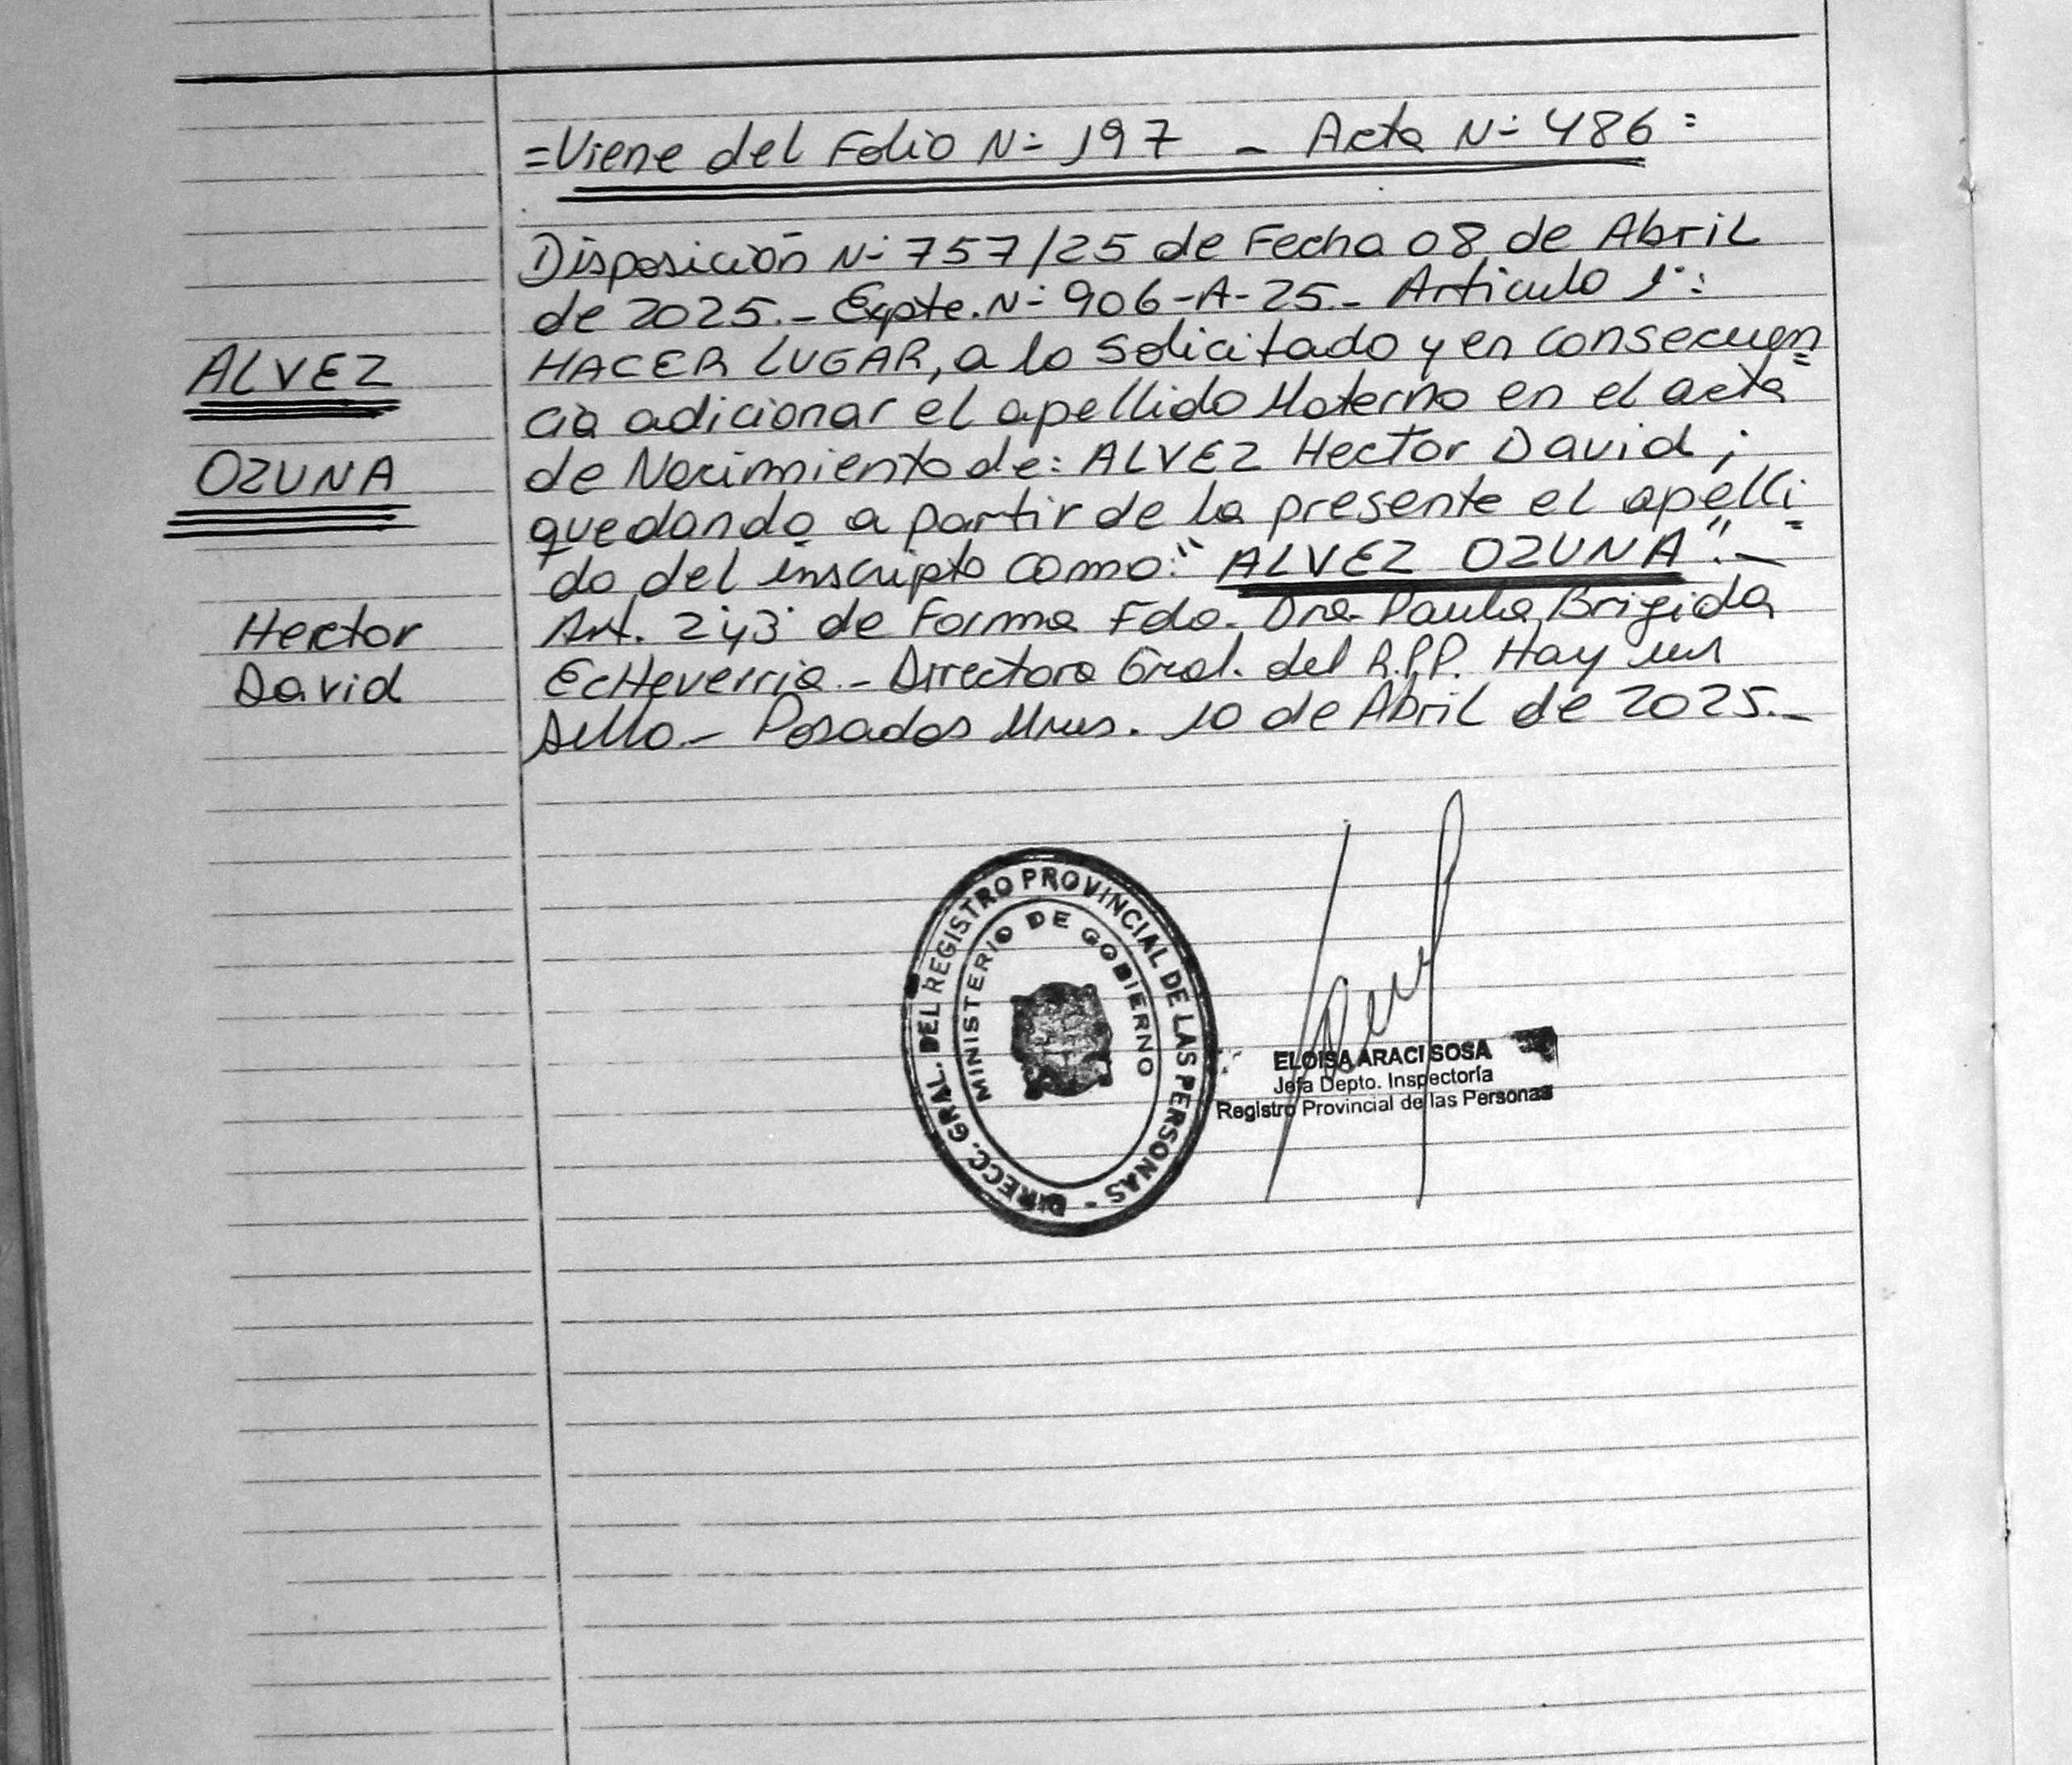 =Viene del Folio N- 197 - Acta N- 486=
Disposición N- 757/25 de Fecha 08 de Abril
de 2025.- Expte. N- 906-A-25.- Articulo 1°:
ALVEZ
HACER LUGAR, a lo solicitado y en consecuen=
cia adicionar el apellido Materno en el acta
OZUNA
de Nacimiento de: ALVEZ Hector David;
quedando a partir de la presente el apelli=
do del inscripto como: "ALVEZ OZUNA".-
Hector
Art. 2°y3° de Forma Fdo. Dra. Paula Brigida
David
EcHeverria - Directora Gral. del R.P.P. Hay un
Sello.- Posadas Mnes. 10 de Abril de 2025.-
DIRECC. GRAL. DEL REGISTRO PROVINCIAL DE LAS PERSONAS -
MINISTERIO DE GOBIERNO
ELOISA ARACI SOSA
Jefa Depto. Inspectoría
Registro Provincial de las Personas